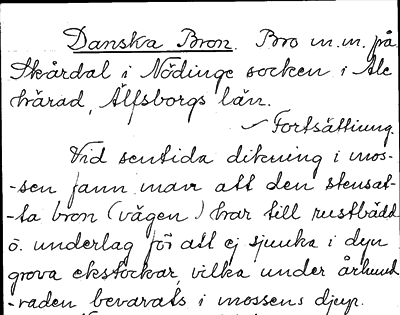 Danska Bron. Bro m.m. på
Skårdal i Nödinge socken i Ale
härad, Älfsborgs län.
Fortsättning.
Vid sentida dikning i mos-
-sen fann man att den stensat-
-ta bron (vägen) har till rustbädd
o. underlag för att ej sjunka i dyn
grova ekstockar, vilka under århund
-raden bevarats i mossens djup.